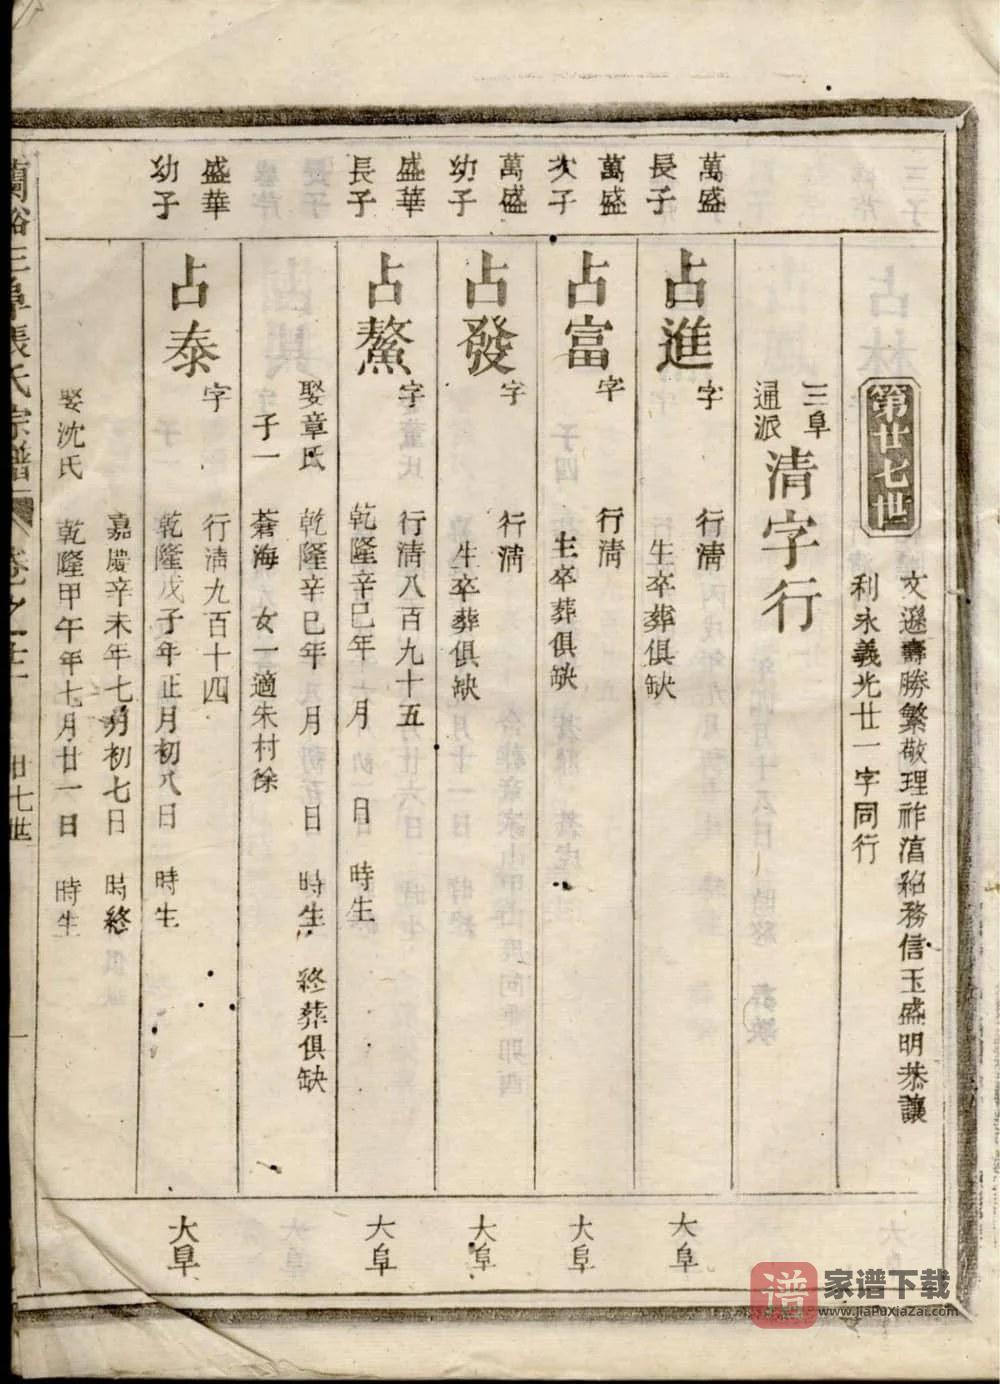 第廿七世
文遜壽勝繁敬理祚滀紹務信玉盛明恭讓
利永義光廿一字同行
三阜
通派
清字行
萬盛
長子
占進
字
行淸
生卒葬俱缺
大阜
萬盛
次子
占富
字
行淸
生卒葬俱缺
大阜
萬盛
幼子
占發
字
行淸
生卒葬俱缺
大阜
盛華
長子
占鰲
字
行淸八百九十五
乾隆辛巳年 月 日 時生
大阜
娶章氏 乾隆辛巳年 月 日 時生 終葬俱缺
子一 蒼海 女一適朱村徐
盛華
幼子
占泰
字
行淸九百十四
乾隆戊子年正月初八日 時生
大阜
嘉慶辛未年七月初七日 時終
娶沈氏 乾隆甲午年七月廿一日 時生
蘭谿三阜張氏宗譜 卷之十一 廿七世 一
谱 家谱下载
www.jiapuxiazai.com